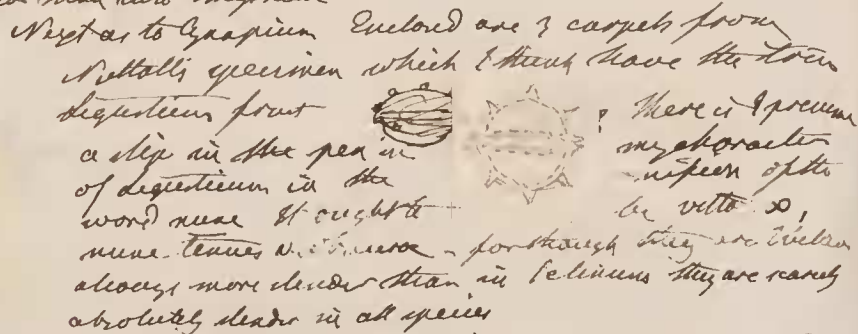 Next as to Cynapium Enclosed are 3 carpels from
Nuttall's specimen which I think have the true
Ligusticum fruit
There is I presume
a slip in the pen in my character
of Ligusticum in the
word nunc It ought to be vittæ ∞,
nunc tenues for though they are
always more slender than in Selinum they are rarely
absolutely slender in all species